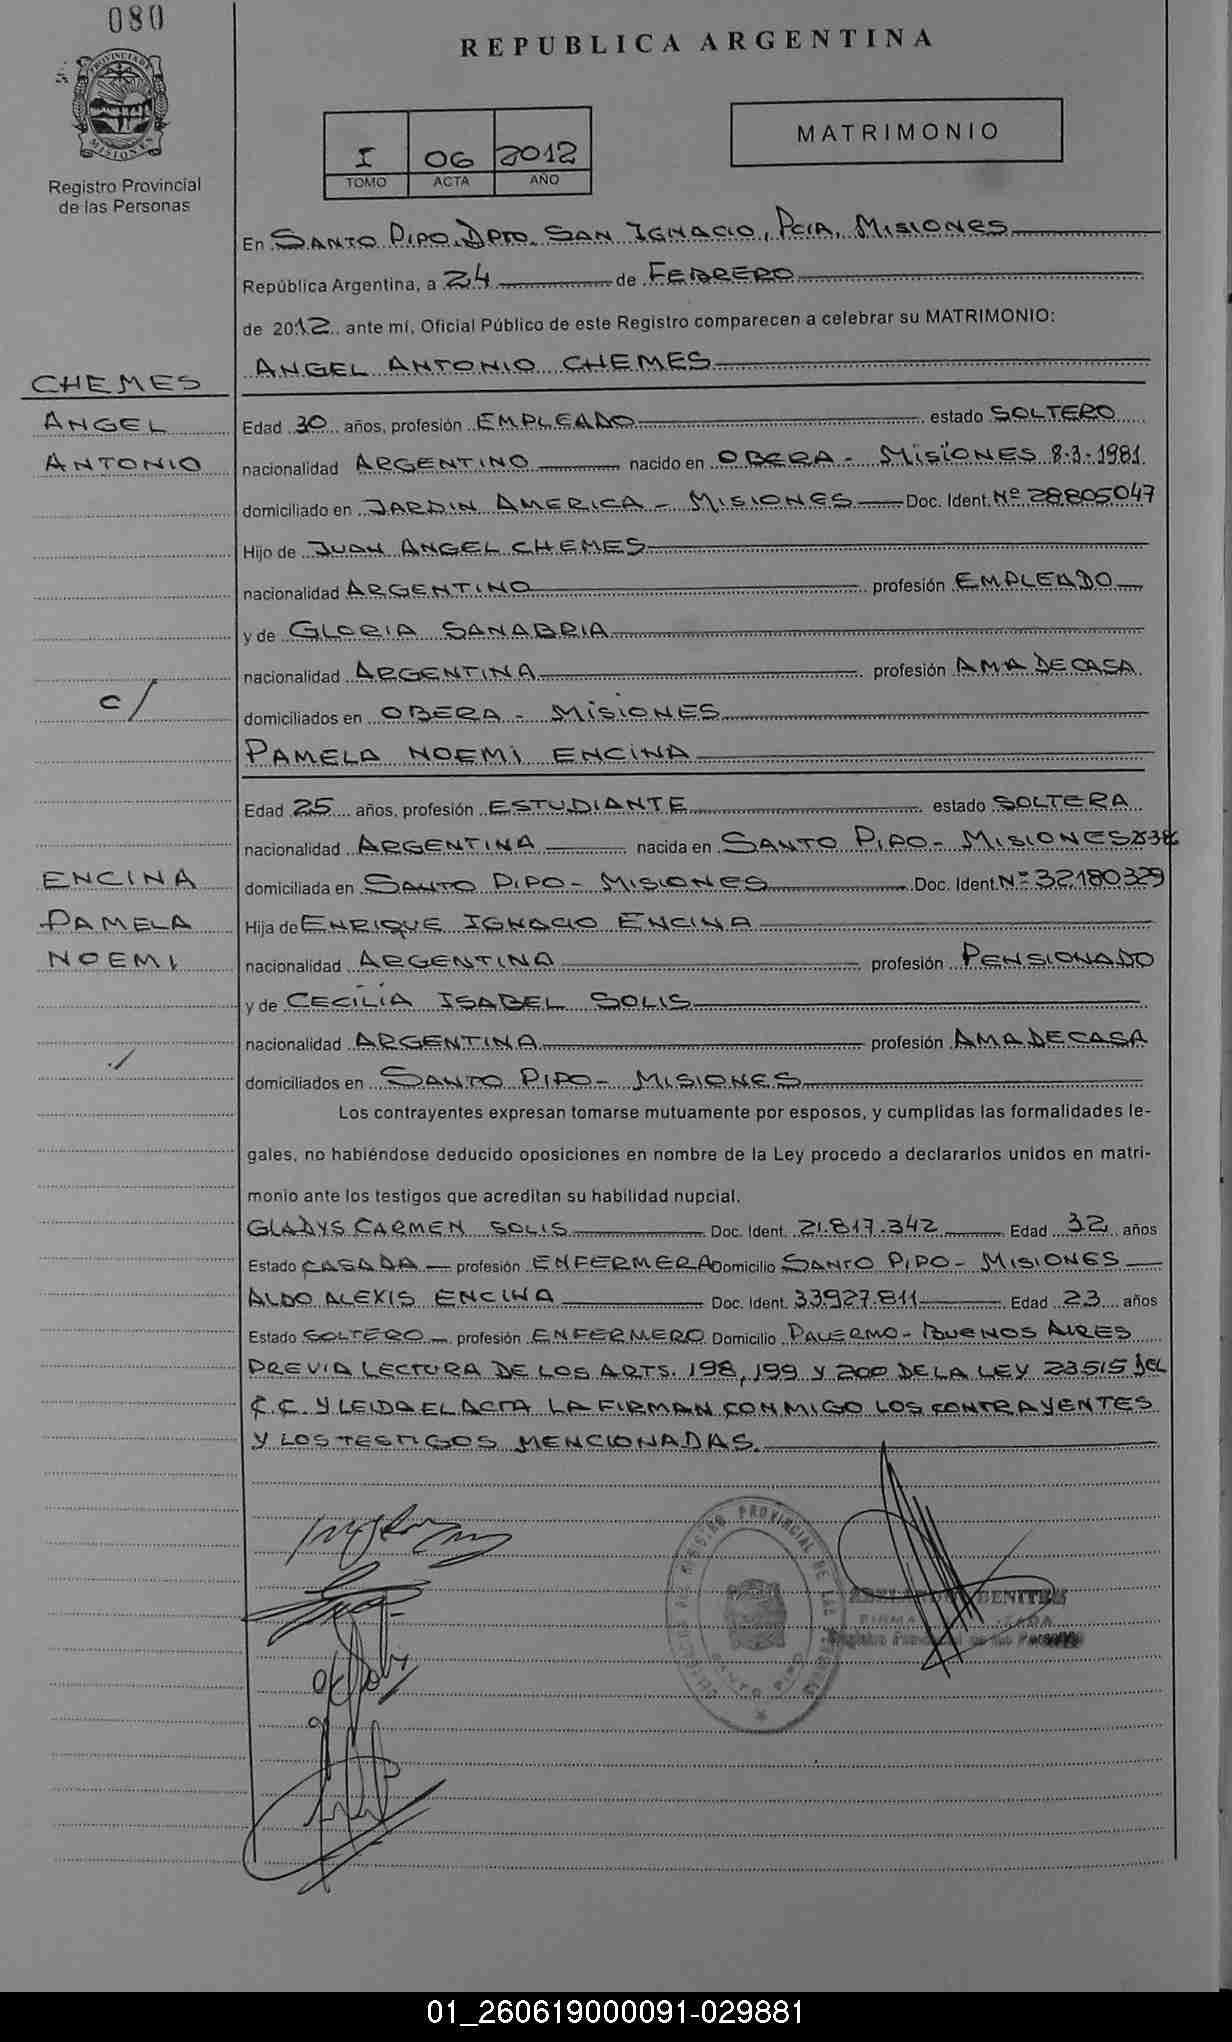 080
REPUBLICA ARGENTINA
PROVINCIA DE
MISIONES
Registro Provincial
de las Personas
I 06 2012
TOMO ACTA AÑO
MATRIMONIO
En SANTO PIPO, DPTO. SAN IGNACIO, PCIA, MISIONES
República Argentina, a 24 de FEBRERO
de 2012 ante mí, Oficial Público de este Registro comparecen a celebrar su MATRIMONIO:
ANGEL ANTONIO CHEMES
CHEMES
ANGEL
ANTONIO
Edad 30 años, profesión EMPLEADO estado SOLTERO
nacionalidad ARGENTINO nacido en OBERA - MISIONES 8-3-1981
domiciliado en JARDIN AMERICA - MISIONES Doc. Ident. Nº 28.805.047
Hijo de JUAN ANGEL CHEMES
nacionalidad ARGENTINO profesión EMPLEADO
y de GLORIA SANABRIA
nacionalidad ARGENTINA profesión AMA DE CASA
c/
domiciliados en OBERA - MISIONES
PAMELA NOEMI ENCINA
Edad 25 años, profesión ESTUDIANTE estado SOLTERA
nacionalidad ARGENTINA nacida en SANTO PIPO - MISIONES
ENCINA
PAMELA
NOEMI
domiciliada en SANTO PIPO - MISIONES Doc. Ident. Nº 32180329
Hija de ENRIQUE IGNACIO ENCINA
nacionalidad ARGENTINA profesión PENSIONADO
y de CECILIA ISABEL SOLIS
nacionalidad ARGENTINA profesión AMA DE CASA
domiciliados en SANTO PIPO - MISIONES
Los contrayentes expresan tomarse mutuamente por esposos, y cumplidas las formalidades le-
gales, no habiéndose deducido oposiciones en nombre de la Ley procedo a declararlos unidos en matri-
monio ante los testigos que acreditan su habilidad nupcial.
GLADYS CARMEN SOLIS Doc. Ident. 21.817.342 Edad 32 años
Estado CASADA profesión ENFERMERA Domicilio SANTO PIPO - MISIONES
ALDO ALEXIS ENCINA Doc. Ident. 33.927.811 Edad 23 años
Estado SOLTERO profesión ENFERMERO Domicilio PALERMO - BUENOS AIRES
PREVIA LECTURA DE LOS ARTS. 198, 199 Y 200 DE LA LEY 23515 DEL
C.C. Y LEIDA EL ACTA LA FIRMAN CONMIGO LOS CONTRAYENTES
Y LOS TESTIGOS MENCIONADAS.
REGISTRO PROVINCIAL DE LAS
SANTO PIPO
BENITEZ
FIRMA
Registro Provincial de las Personas
01_260619000091-029881